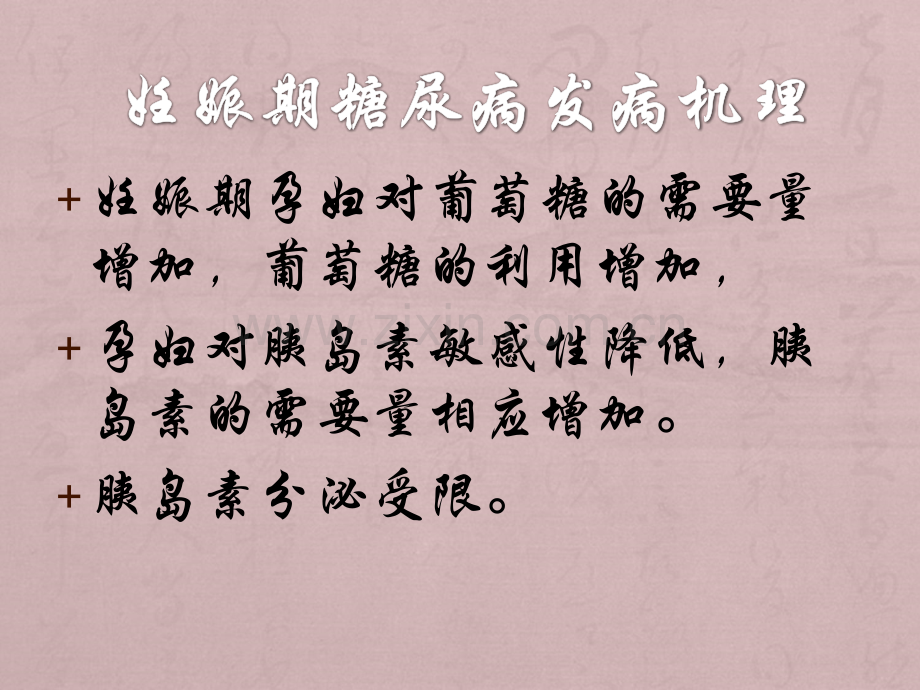 妊娠期糖尿病发病机理
+ 妊娠期孕妇对葡萄糖的需要量
增加，葡萄糖的利用增加，
+ 孕妇对胰岛素敏感性降低，胰
岛素的需要量相应增加。
+ 胰岛素分泌受限。
www.zixin.com.cn